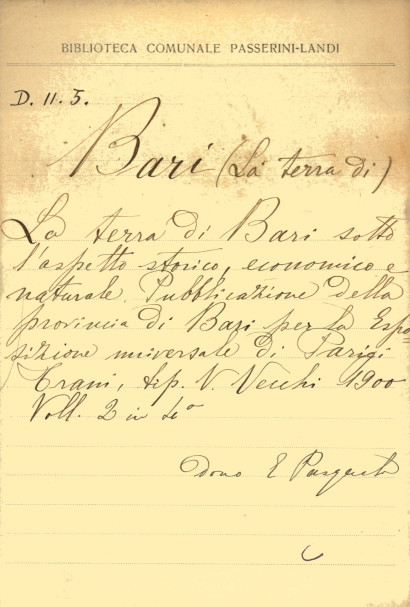 BIBLIOTECA COMUNALE PASSERINI-LANDI
D. 11. 5.
Bari (La terra di)
La terra di Bari sotto
l'aspetto storico, economico e
naturale. Pubblicazione della
provincia di Bari per la Espo-
sizione universale di Parigi
Trani, tip. V. Vecchi 1900
Voll. 2 in 4º
dono E